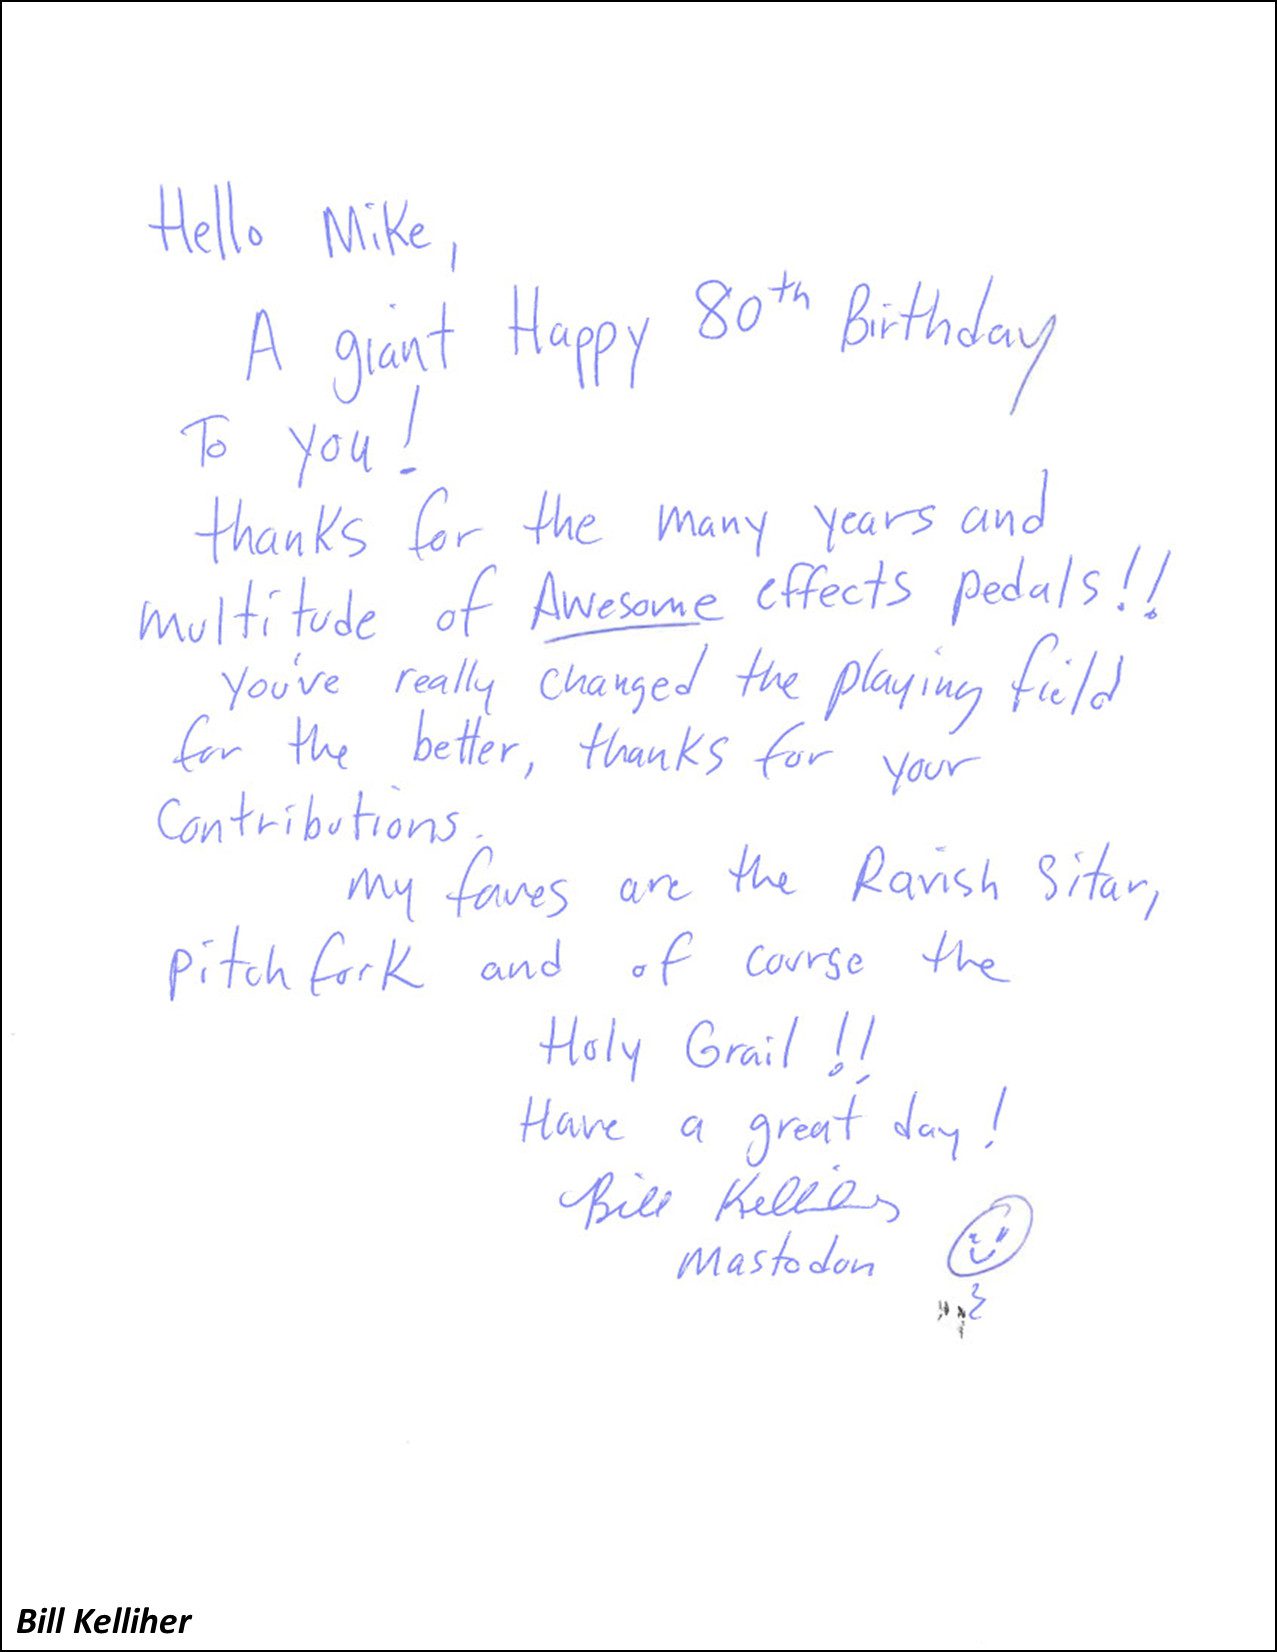 Hello Mike,
A giant Happy 80th Birthday
To you!
thanks for the many years and
multitude of Awesome effects pedals!!
you've really changed the playing field
for the better, thanks for your
Contributions.
my faves are the Ravish Sitar,
pitch fork and of course the
Holy Grail!!
Have a great day!
Bill Kelliher
Mastodon
Bill Kelliher